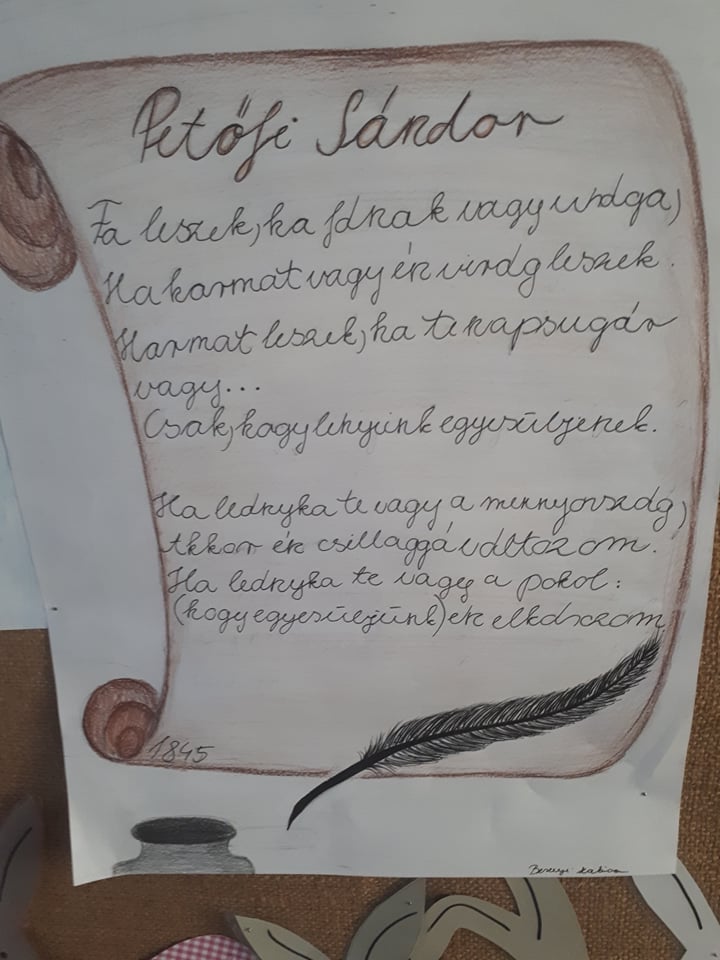 Petőfi Sándor
Fa leszek, ha fának vagy virága,
Ha harmat vagy én virág leszek.
Harmat leszek, ha te napsugár
vagy...
Csak, hogy lényünk egyesüljenek.
Ha leányka te vagy a mennyország,
Akkor én csillaggá változom.
Ha leányka te vagy a pokol:
(hogy egyesüljünk) én elkározom
1845